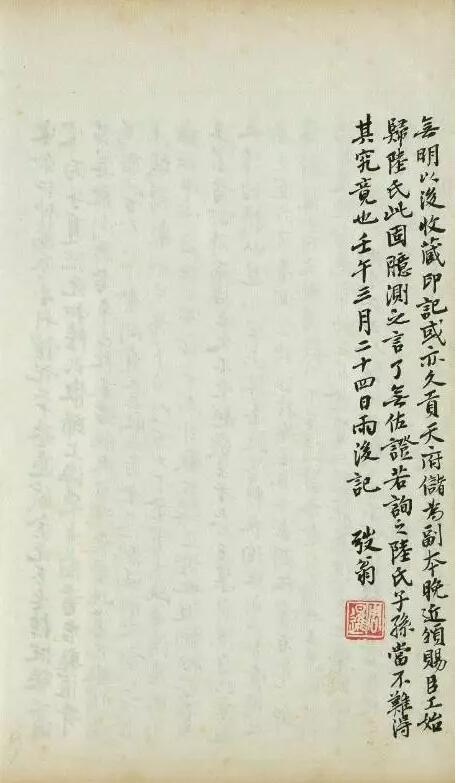 無明以後收藏印記或亦久貢天府儲為副本晚近頒賜臣工始
歸陸氏此固臆測之言了無佐證若詢之陸氏子孫當不難得
其究竟也壬午三月二十四日雨後記
弢翁
周暹